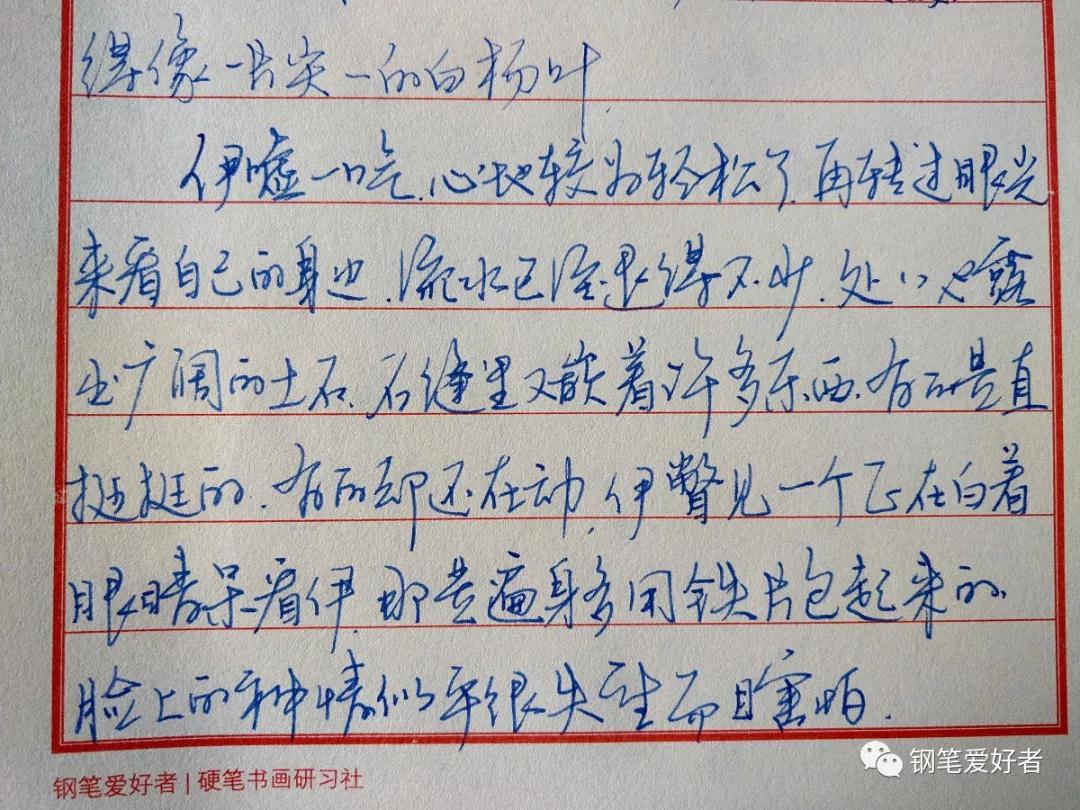 得像一片尖々的白杨叶.
伊嘘一口气.心地较为轻松了.再转过眼光
来看自己的身边.流水已经退得不少.处々也露
出广阔的土石.石缝里又嵌着许多东西.有的是直
挺挺的.有的却还在动.伊瞥见一个正在白着
眼睛呆看伊.那是遍身多用铁片包起来的.
脸上的神情似乎很失望而且害怕.
钢笔爱好者 | 硬笔书画研习社
钢笔爱好者